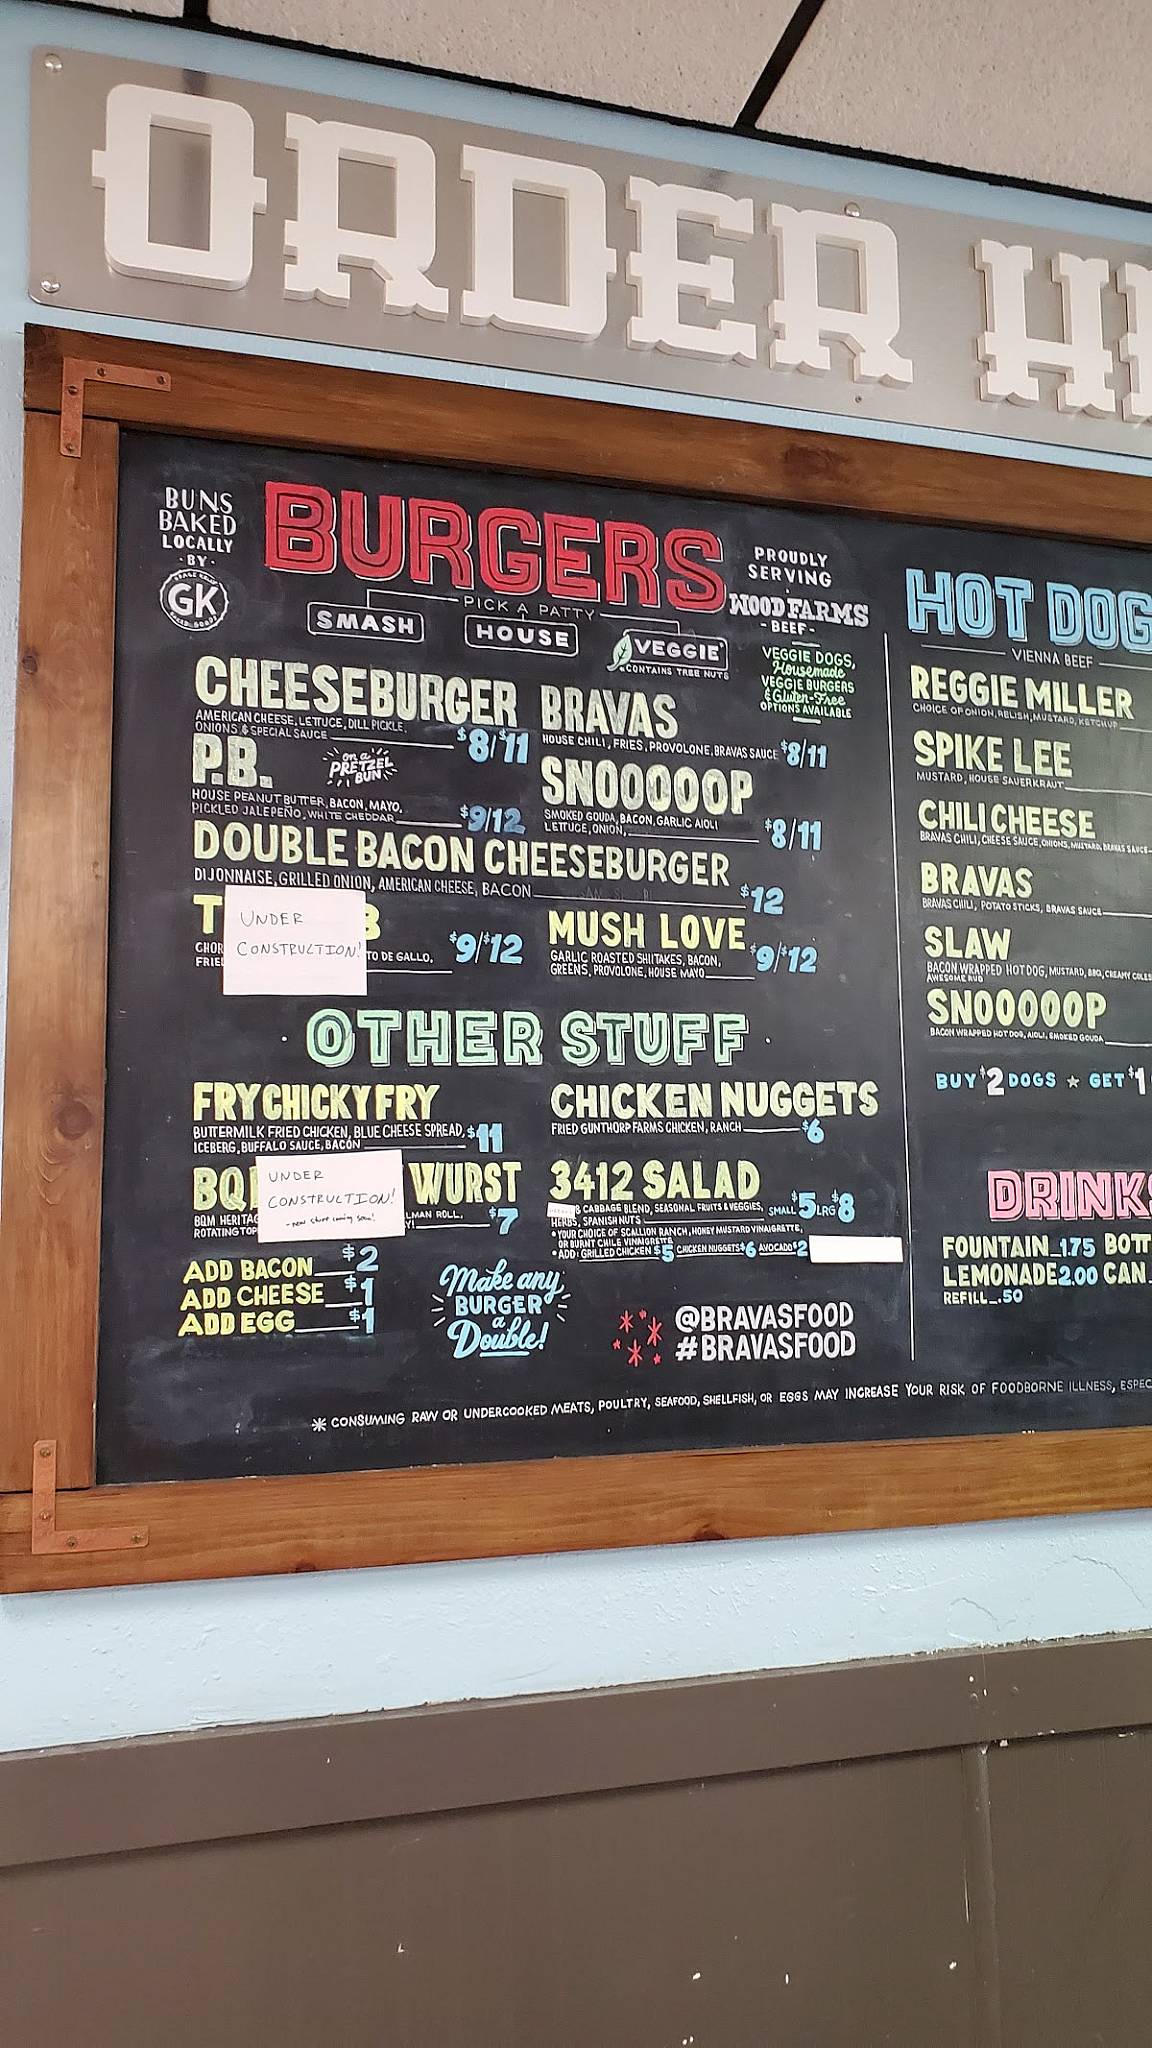 ORDER
BUNS
BAKED
LOCALLY
·BY·
GK
BURGERS
PICK A PATTY
SMASH
HOUSE
VEGGIE
CONTAINS TREE NUTS
PROUDLY
SERVING
WOOD FARMS
-BEEF-
VEGGIE DOGS,
Housemade
VEGGIE BURGERS
& Gluten-Free
OPTIONS AVAILABLE
CHEESEBURGER
AMERICAN CHEESE, LETTUCE, DILL PICKLE,
ONIONS & SPECIAL SAUCE $8/$11
BRAVAS
HOUSE CHILI, FRIES, PROVOLONE, BRAVAS SAUCE $8/11
P.B.
on a
PRETZEL
BUN
HOUSE PEANUT BUTTER, BACON, MAYO,
PICKLED JALEPEÑO, WHITE CHEDDAR $9/12
SNOOOOOP
SMOKED GOUDA, BACON, GARLIC AIOLI
LETTUCE, ONION, $8/11
DOUBLE BACON CHEESEBURGER
DIJONNAISE, GRILLED ONION, AMERICAN CHEESE, BACON $12
UNDER
CONSTRUCTION!
TO DE GALLO,
$9/$12
MUSH LOVE
GARLIC ROASTED SHIITAKES, BACON,
GREENS, PROVOLONE, HOUSE MAYO $9/$12
· OTHER STUFF ·
FRYCHICKYFRY
BUTTERMILK FRIED CHICKEN, BLUE CHEESE SPREAD,
ICEBERG, BUFFALO SAUCE, BACON $11
CHICKEN NUGGETS
FRIED GUNTHORP FARMS CHICKEN, RANCH $6
BQ WURST
UNDER
CONSTRUCTION!
-new stuff coming soon!
BQM HERITAG LMAN ROLL,
ROTATING TOP $7
3412 SALAD
& CABBAGE BLEND, SEASONAL FRUITS & VEGGIES,
HERBS, SPANISH NUTS SMALL $5 LRG $8
• YOUR CHOICE OF SCALLION RANCH, HONEY MUSTARD VINAIGRETTE,
OR BURNT CHILE VINAIGRETTE
• ADD: GRILLED CHICKEN $5 CHICKEN NUGGETS $6 AVOCADO $2
ADD BACON $2
ADD CHEESE $1
ADD EGG $1
Make any
BURGER
a
Double!
@BRAVASFOOD
#BRAVASFOOD
HOT DOG
VIENNA BEEF
REGGIE MILLER
CHOICE OF ONION, RELISH, MUSTARD, KETCHUP
SPIKE LEE
MUSTARD, HOUSE SAUERKRAUT
CHILI CHEESE
BRAVAS CHILI, CHEESE SAUCE, ONIONS, MUSTARD, BRAVAS SAUCE
BRAVAS
BRAVAS CHILI, POTATO STICKS, BRAVAS SAUCE
SLAW
BACON WRAPPED HOT DOG, MUSTARD, BBQ, CREAMY COLES
AWESOME RUB
SNOOOOOP
BACON WRAPPED HOT DOG, AIOLI, SMOKED GOUDA
BUY $2 DOGS ★ GET $1
DRINKS
FOUNTAIN 1.75 BOTT
LEMONADE 2.00 CAN
REFILL .50
* CONSUMING RAW OR UNDERCOOKED MEATS, POULTRY, SEAFOOD, SHELLFISH, OR EGGS MAY INCREASE YOUR RISK OF FOODBORNE ILLNESS, ESPEC